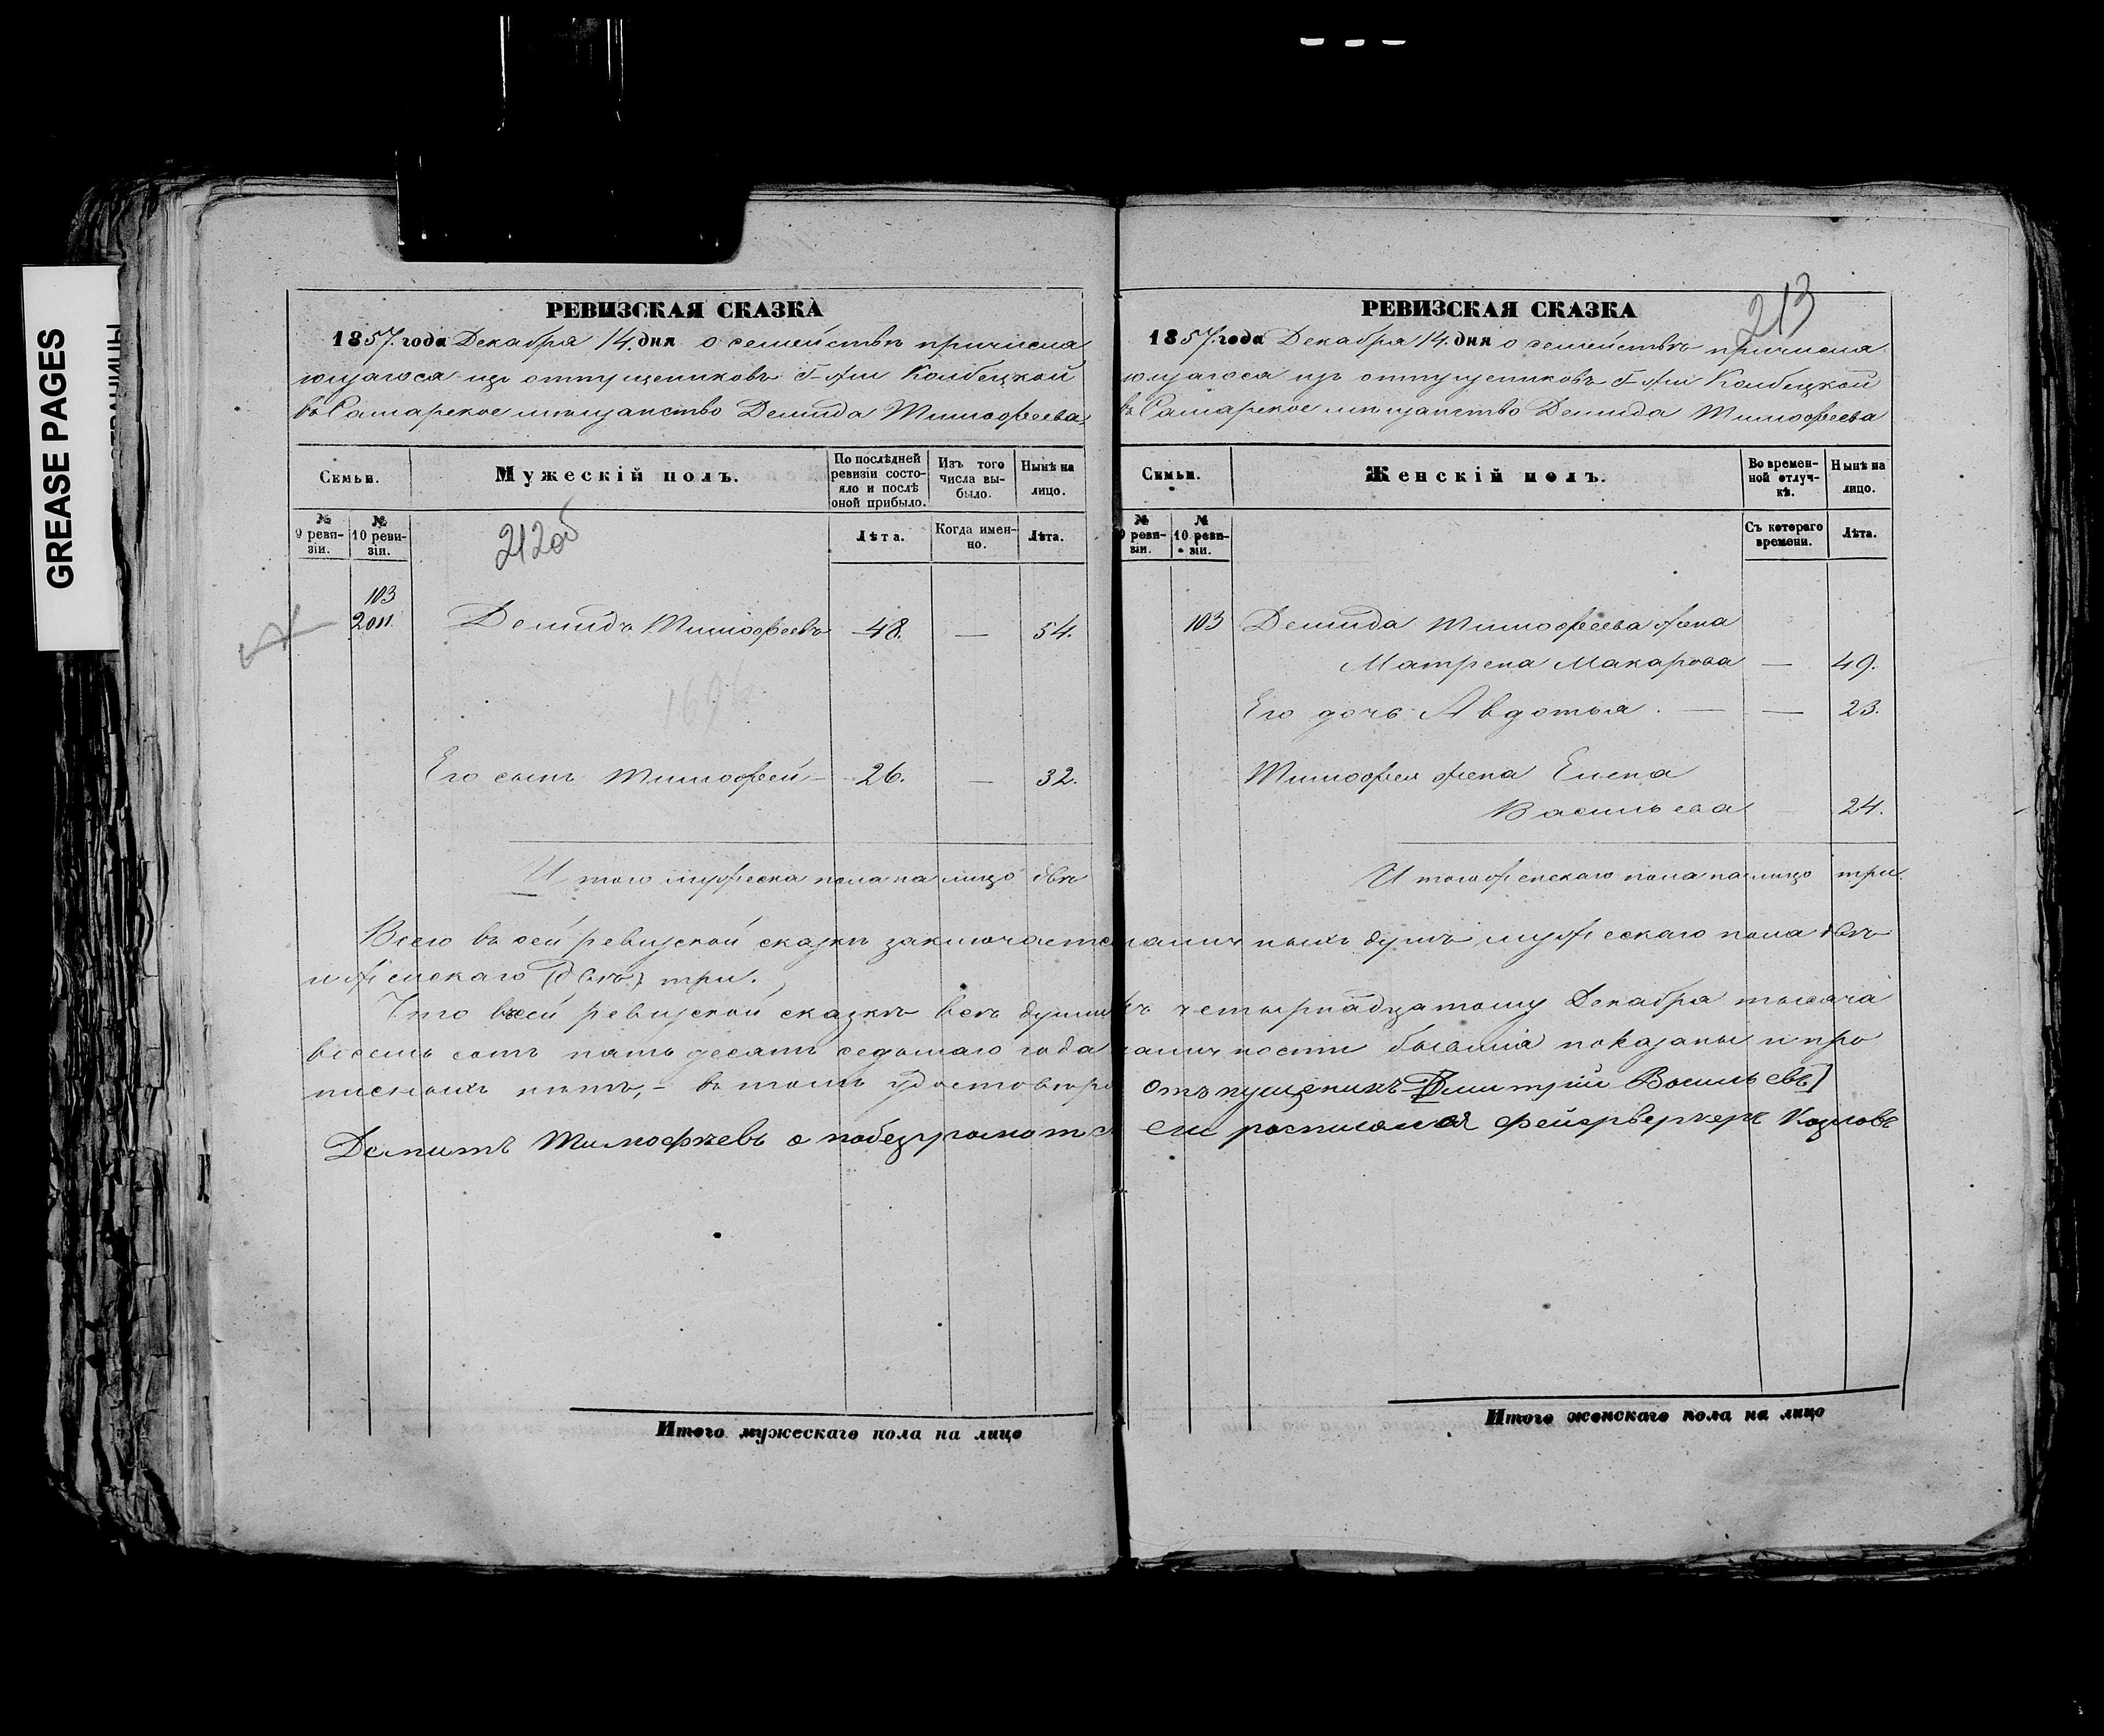 GREASE PAGES
СТРАНИЦЫ
РЕВИЗСКАЯ СКАЗКА
1857. года Декабря 14. дня о семействѣ причисля
ющагося изъ отпущениковъ Г-жи Колбецкой
въ Самарское мѣщанство Демида Тимофеева
Семьи.
Мужескій полъ.
По послѣдней ревизіи состояло и послѣ оной прибыло.
Изъ того числа выбыло.
Нынѣ на лицо.
№ 9 ревизіи.
№ 10 ревизіи.
212об
Лѣта.
Когда именно.
Лѣта.
103
2011. Демидъ Тимофеевъ 48. — 54.
Его сынъ Тимофей — 26. — 32.
Итого мужеска пола на лицо два
РЕВИЗСКАЯ СКАЗКА
213
1857. года Декабря 14. дня о семействѣ причисля
ющагося изъ отпущениковъ Г-жи Колбецкой
въ Самарское мѣщанство Демида Тимофеева
Семьи.
Женскій полъ.
Во временной отлучкѣ.
Нынѣ на лицо.
9 ревизіи.
№ 10 ревизіи.
Съ котораго времени.
Лѣта.
103 Демида Тимофеева жена
Матрена Макарова — 49.
Его дочь Авдотья. — — 23.
Тимофея жена Елена
Васильева 24.
Итого женскаго пола на лицо три.
Всего въ сей ревизской сказкѣ заключается наличныхъ душъ мужескаго пола двѣ
и женскаго (двѣ) три.
Что въ сей ревизской сказкѣ всѣ души къ четырнадцатому Декабря тысяча
восемь сотъ пятьдесятъ седьмаго года наличности бывшія показаны и про
писныхъ нѣтъ, — въ томъ удостовѣря отъпущеникъ Дмитрій Васильевъ
Демитъ Тимофѣевъ а побезграмотс еи росписался фейерверкеръ Козловъ
Итого мужескаго пола на лицо
Итого женскаго пола на лицо